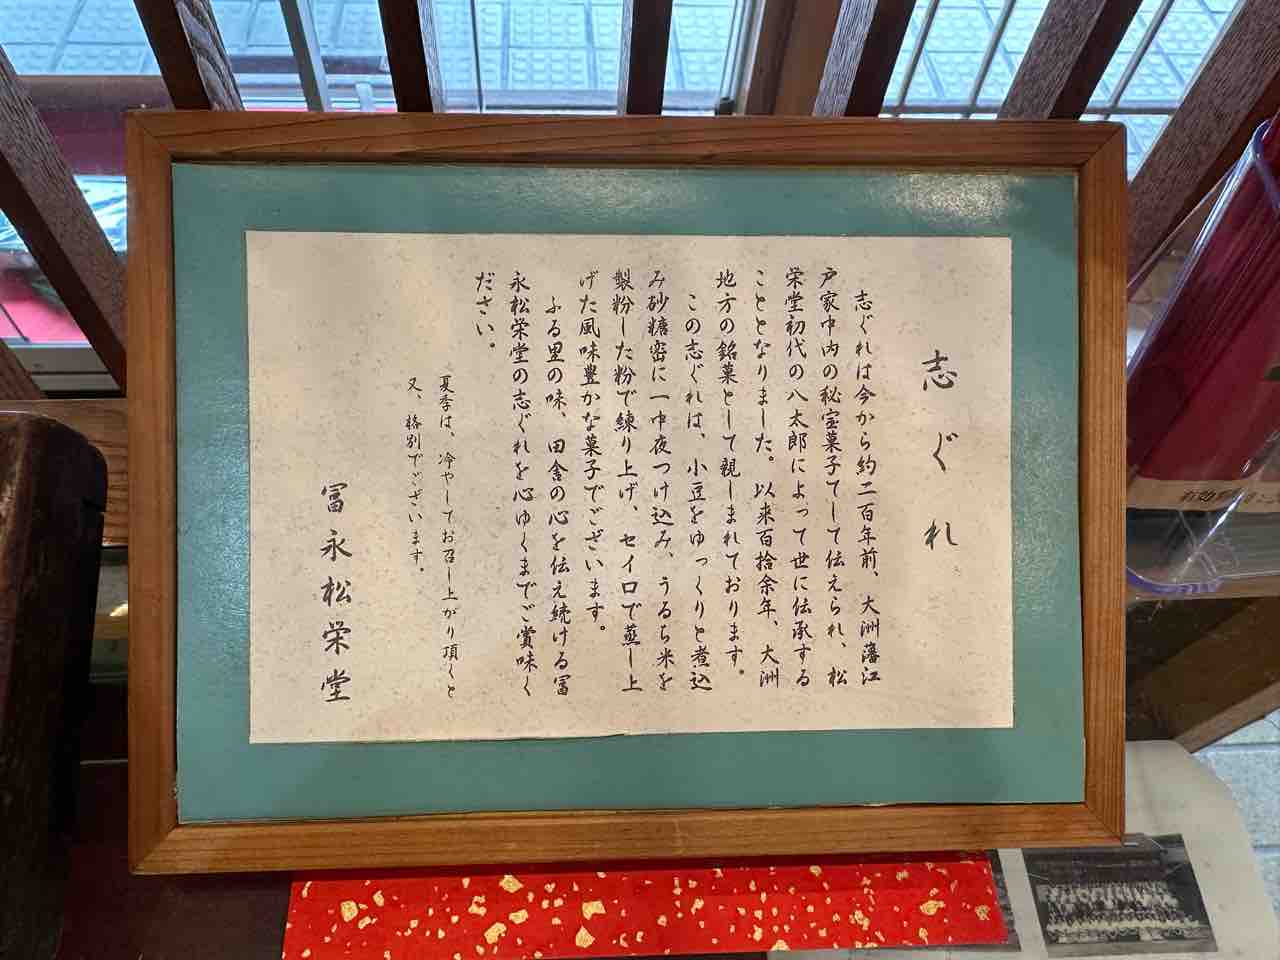 志ぐれ
志ぐれは今から約二百年前、大洲藩江
戸家中内の秘宝菓子てして伝えられ、松
栄堂初代の八太郎によって世に伝承する
こととなりました。以来百拾余年、大洲
地方の銘菓として親しまれております。
この志ぐれは、小豆をゆっくりと煮込
み砂糖密に一中夜つけ込み、うるち米を
製粉した粉で練り上げ、セイロで蒸し上
げた風味豊かな菓子でございます。
ふる里の味、田舎の心を伝え続ける冨
永松栄堂の志ぐれを心ゆくまでご賞味く
ださい。
夏季は、冷やしてお召し上がり頂くと
又、格別でございます。
冨永松栄堂